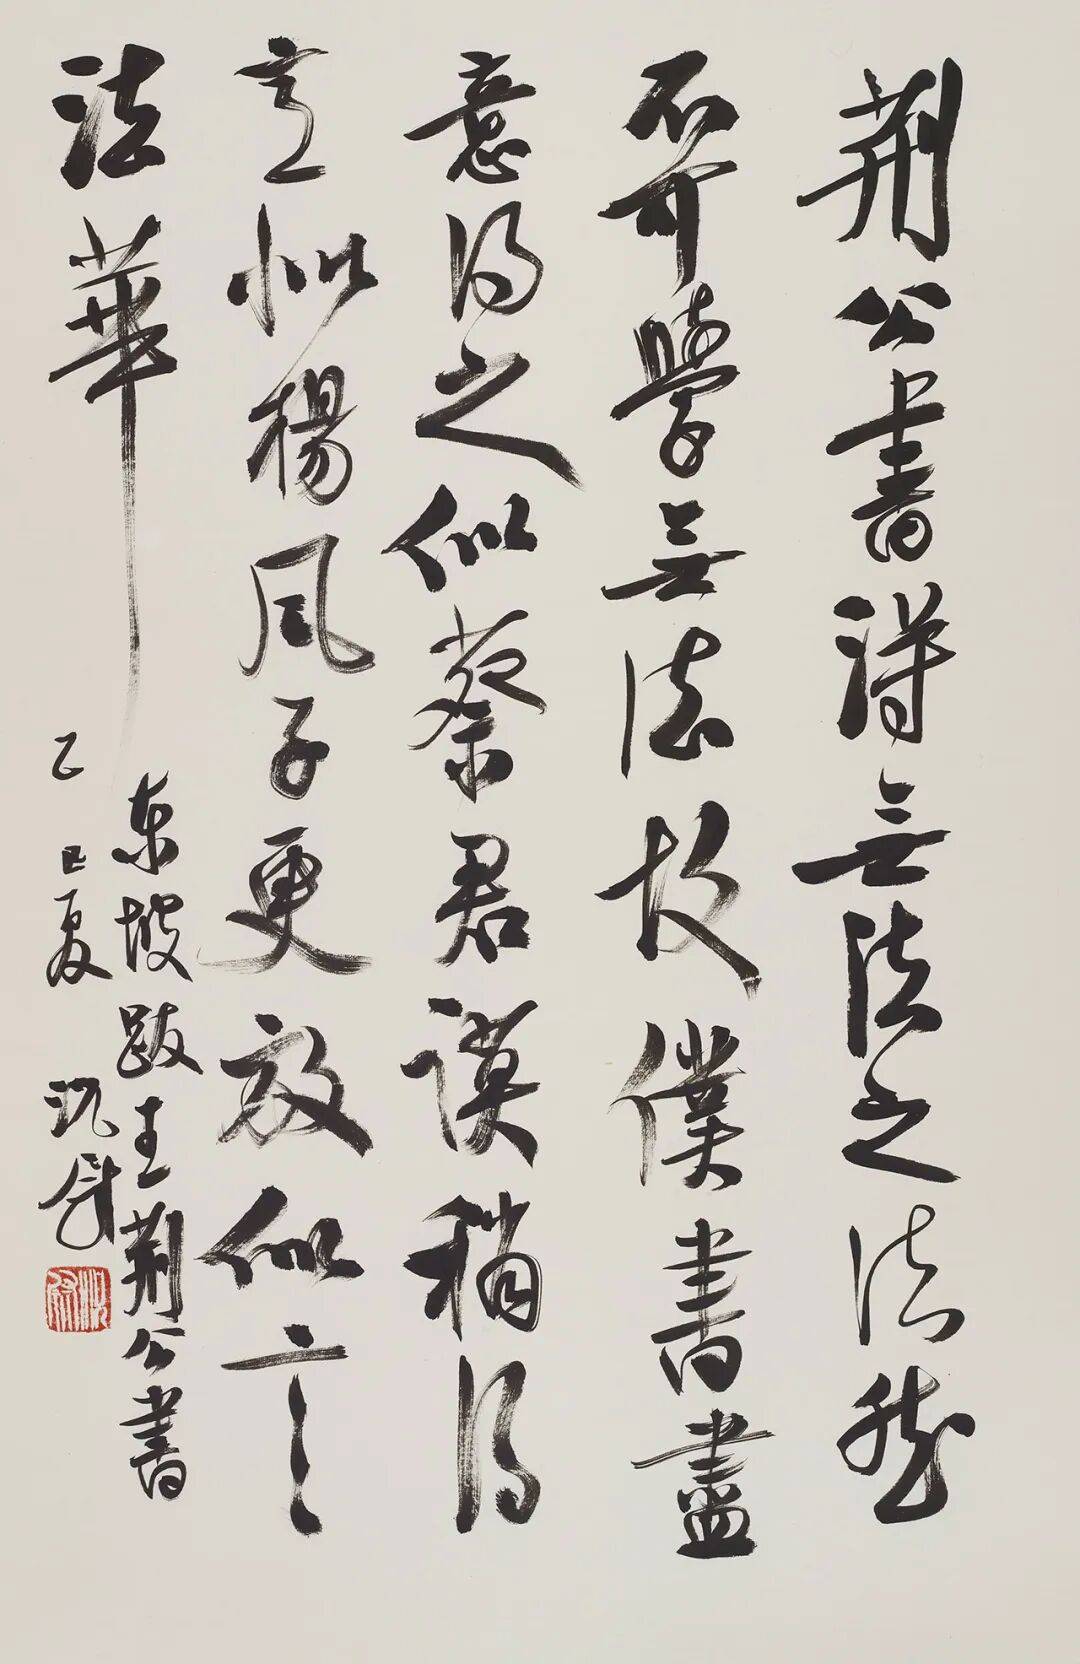 荆公書得無法之法然
不可學無法故僕書盡
意得之似蔡君謨稍得
意似楊風子更放似言
法華
東坡跋王荆公書
乙巳夏